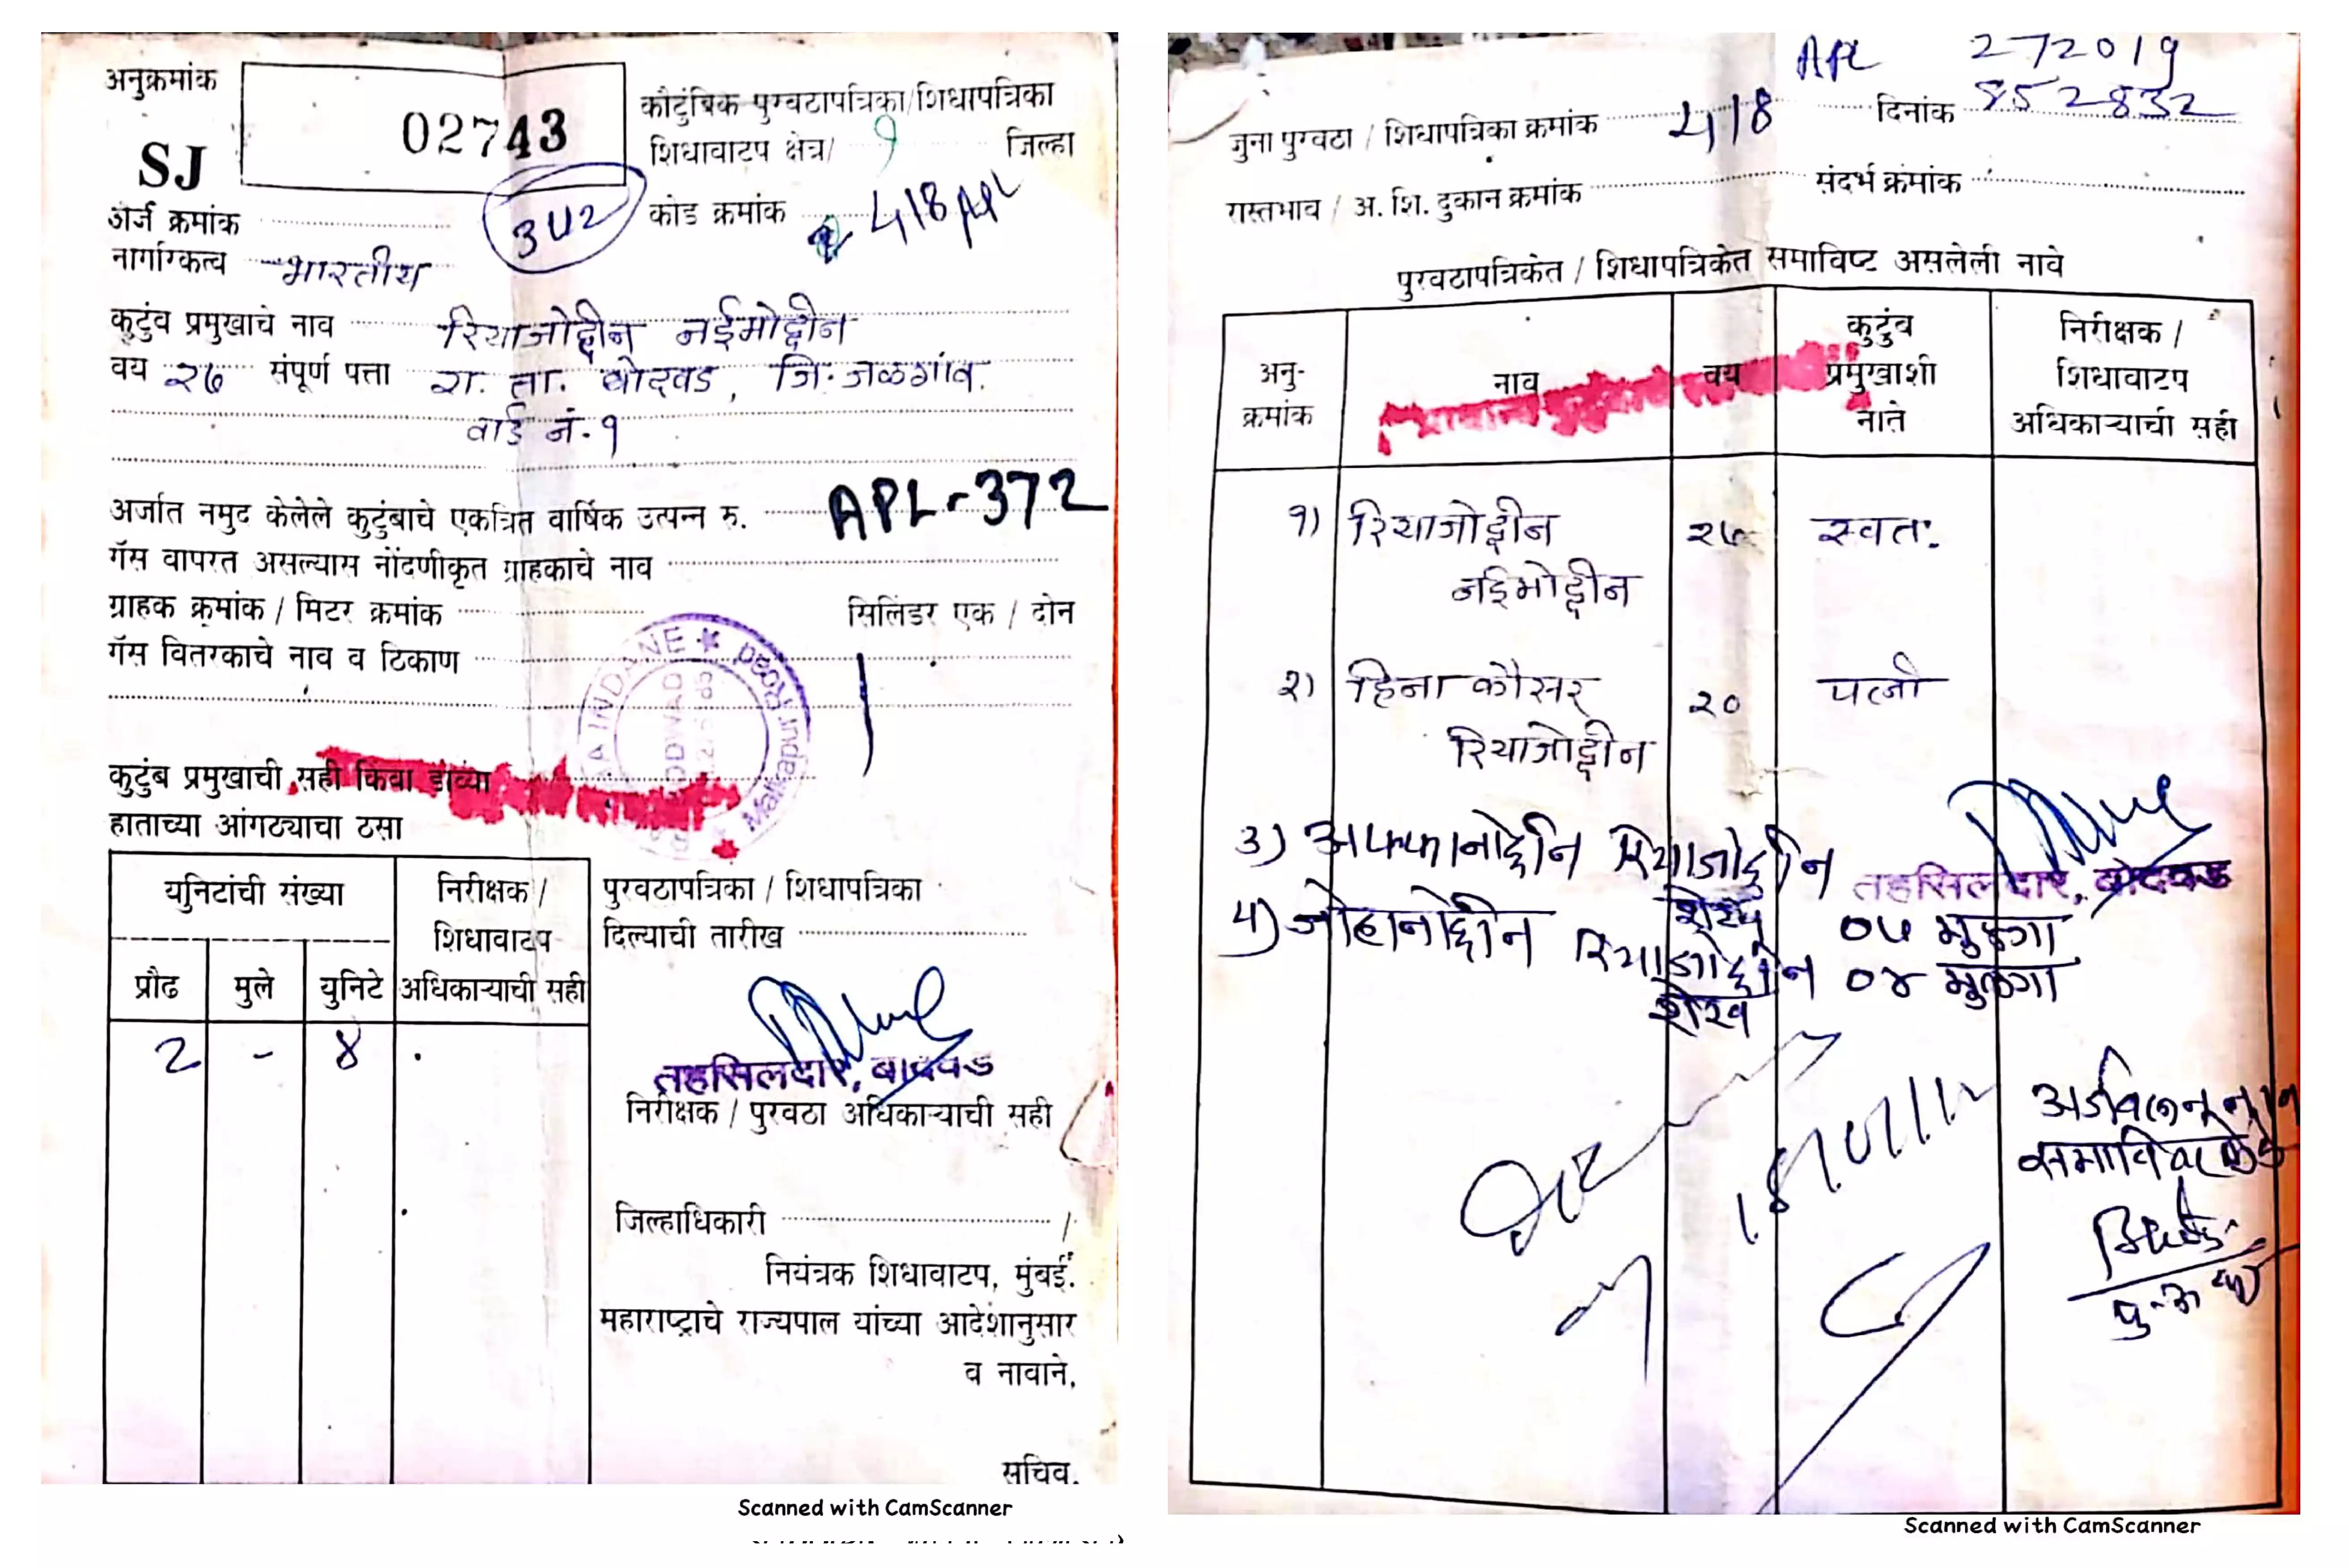 अनुक्रमांक
02743
SJ
कौटुंबिक पुरवठापत्रिका/शिधापत्रिका
शिधावाटप क्षेत्र/ १ जिल्हा
कोड क्रमांक 418 APL
अर्ज क्रमांक
342
नागरिकत्व भारतीय
कुटुंब प्रमुखाचे नाव रियाजोद्दीन नईमोद्दीन
वय २७ संपूर्ण पत्ता रा. ता. बोदवड, जि. जळगांव.
वार्ड नं. १
अर्जात नमुद केलेले कुटुंबाचे एकत्रित वार्षिक उत्पन्न रु. APL-372
गॅस वापरत असल्यास नोंदणीकृत ग्राहकाचे नाव
ग्राहक क्रमांक / मिटर क्रमांक सिलिंडर एक / दोन
गॅस वितरकाचे नाव व ठिकाण
INDANE
Malkapur Road
कुटुंब प्रमुखाची सही किंवा डाव्या
हाताच्या आंगठ्याचा ठसा
युनिटांची संख्या
प्रौढ मुले युनिटे
निरीक्षक /
शिधावाटप
अधिकाऱ्याची सही
2 - ४
पुरवठापत्रिका / शिधापत्रिका
दिल्याची तारीख
तहसिलदार, बोदवड
निरीक्षक / पुरवठा अधिकाऱ्याची सही
जिल्हाधिकारी /
नियंत्रक शिधावाटप, मुंबई.
महाराष्ट्राचे राज्यपाल यांच्या आदेशांनुसार
व नावाने,
सचिव.
Scanned with CamScanner
APL 272019
852832
जुना पुरवठा / शिधापत्रिका क्रमांक 418 दिनांक
रास्तभाव / अ. शि. दुकान क्रमांक संदर्भ क्रंमांक
पुरवठापत्रिकेत / शिधापत्रिकेत समाविष्ट असलेली नावे
अनु-
क्रमांक
नाव
वय
कुटुंब
प्रमुखाशी
नाते
निरीक्षक /
शिधावाटप
अधिकाऱ्याची सही
१) रियाजोद्दीन २७ स्वतः
नईमोद्दीन
२) हिना कौसर २० पत्नी
रियाजोद्दीन
3) अफ्फानोद्दीन रियाजोद्दीन
शेख ०५ मुलगा
तहसिलदार, बोदवड
४) जोहानोद्दीन रियाजोद्दीन ०४ मुलगा
शेख
Scanned with CamScanner